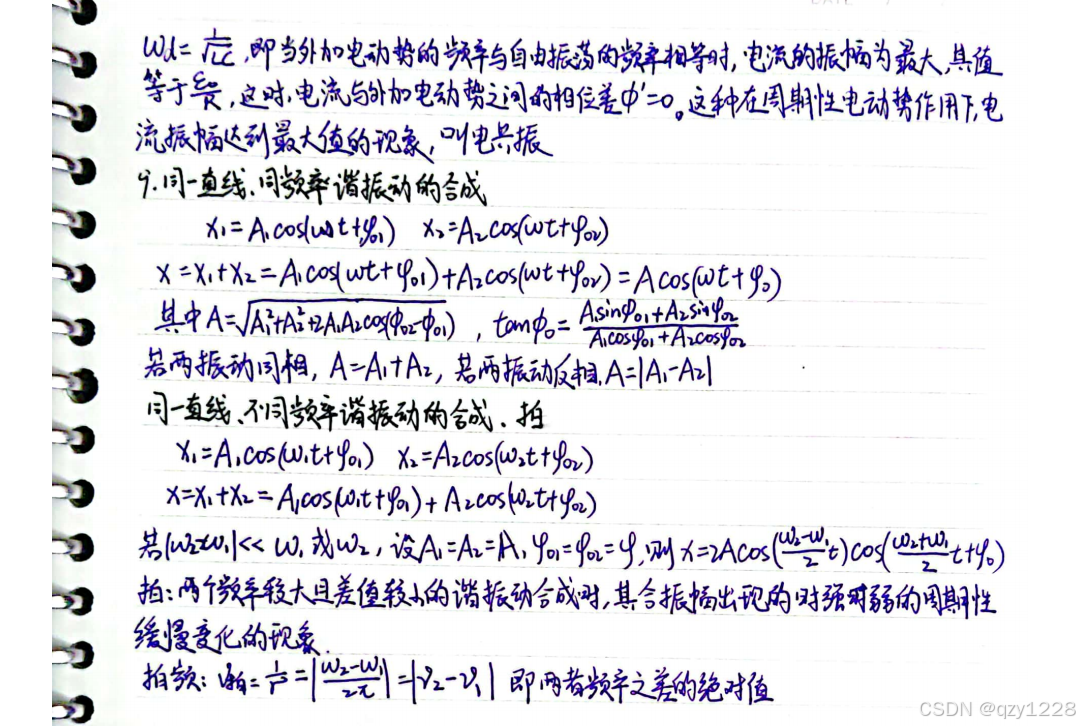 ωd=1/√LC,即当外加电动势的频率与自由振荡的频率相等时,电流的振幅为最大,其值
等于ε₀/R,这时,电流与外加电动势之间的相位差φ'=0。这种在周期性电动势作用下,电
流振幅达到最大值的现象,叫电共振
9.同一直线、同频率谐振动的合成
x₁=A₁cos(ωt+φ₀₁) x₂=A₂cos(ωt+φ₀₂)
x=x₁+x₂=A₁cos(ωt+φ₀₁)+A₂cos(ωt+φ₀₂)=Acos(ωt+φ₀)
其中A=√(A₁²+A₂²+2A₁A₂cos(φ₀₂-φ₀₁)) , tanφ₀=(A₁sinφ₀₁+A₂sinφ₀₂)/(A₁cosφ₀₁+A₂cosφ₀₂)
若两振动同相,A=A₁+A₂,若两振动反相,A=|A₁-A₂|
同一直线、不同频率谐振动的合成、拍
x₁=A₁cos(ω₁t+φ₀₁) x₂=A₂cos(ω₂t+φ₀₂)
x=x₁+x₂=A₁cos(ω₁t+φ₀₁)+A₂cos(ω₂t+φ₀₂)
若|ω₂-ω₁|<<ω₁或ω₂,设A₁=A₂=A,φ₀₁=φ₀₂=φ,则x=2Acos((ω₂-ω₁)/2 t)cos((ω₂+ω₁)/2 t+φ₀)
拍:两个频率较大且差值较小的谐振动合成时,其合振幅出现的时强时弱的周期性
缓慢变化的现象.
拍频:ν拍=1/T=|(ω₂-ω₁)/2π|=|ν₂-ν₁| 即两者频率之差的绝对值
CSDN @qzy1228